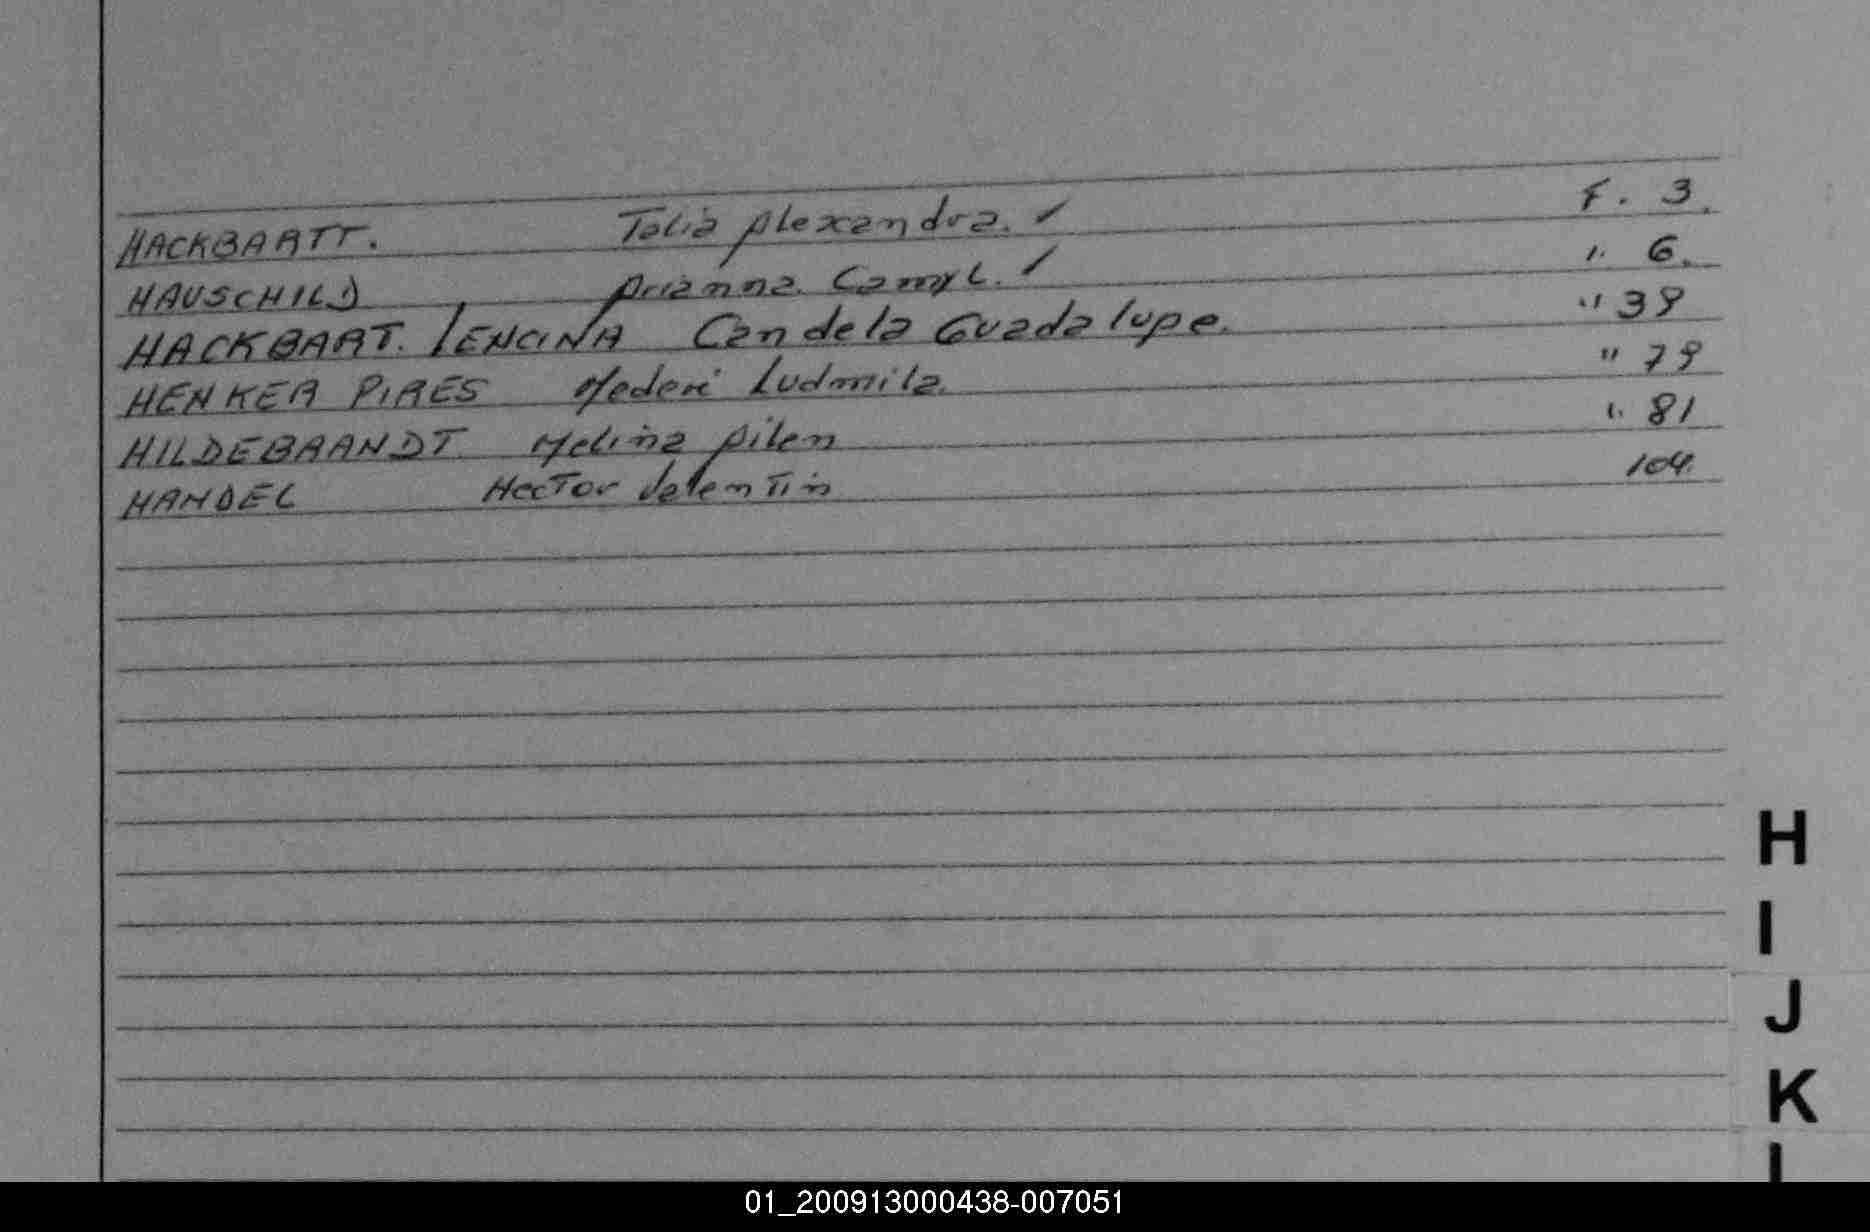 HACKBARTT. Talia Alexandra. ✓ F. 3.
HAUSCHILD Arianna. Camyl. ✓ " 6.
HACKBART. LENCINA Candela Guadalupe. " 39
HENKER PIRES Mederi Ludmila. " 79
HILDEBRANDT. Melina Ailen " 81
HANDEL Hector Valentin 104.
H
I
J
K
L
01_200913000438-007051